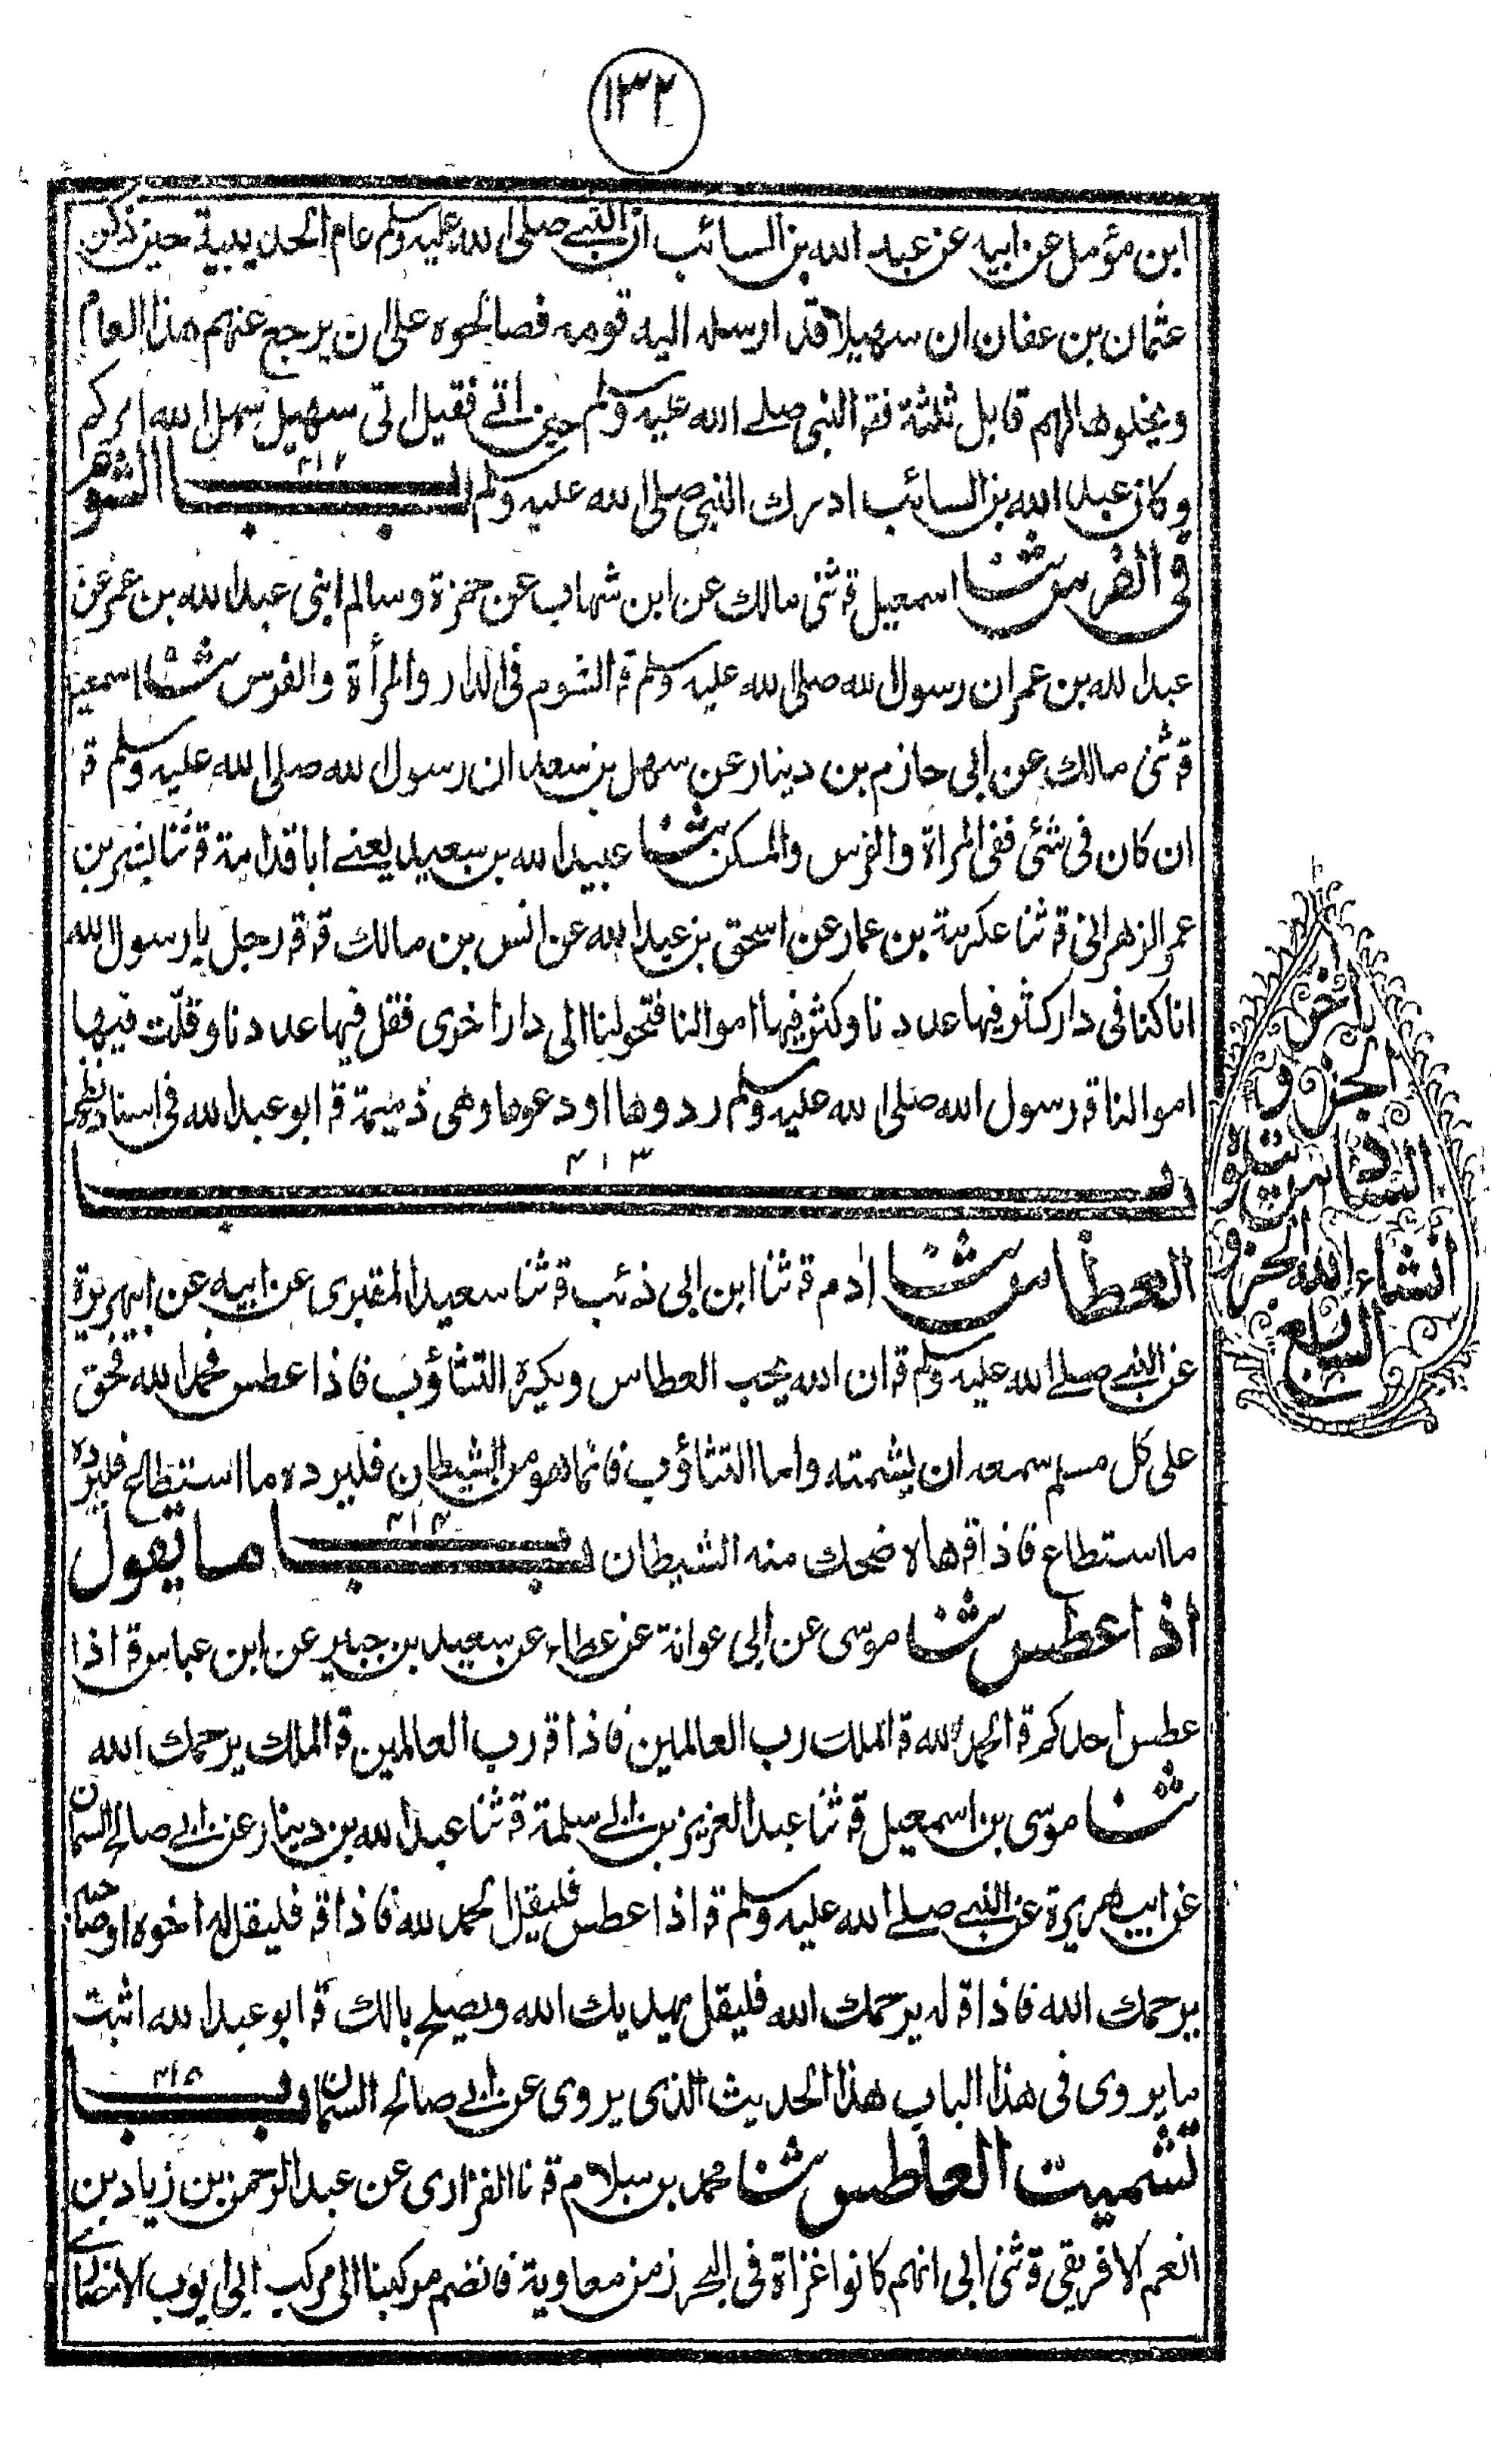 ١٣٢
ابن مؤمل عن ابيه عن عبد الله بن السائب ان النبي صلى الله عليه وسلم عام الحديبية حين ذكر
عثمان بن عفان ان سهيلا قد ارسله اليه قومه فصالحوه على ان يرجع عنهم هذا العام
ويخلوها لهم قابل ثلثة فقـ النبى صلے الله عليه وسلم حين اتے فقيل اتى سهيل سهل الله امركم
وكان عبد الله بن السائب ادرك النبى صلى الله عليه وسلم باب ٤١٢ الشوم
فى الفرس ثنا اسمعيل قـ ثنى مالك عن ابن شهاب عن حمزة وسالم ابنى عبد الله بن عمر عن
عبد الله بن عمر ان رسول الله صلى الله عليه وسلم قـ الشوم فى الدار والمرأة والفرس ثنا اسمعيل
قـ ثنى مالك عن ابى حازم بن دينار عن سهل بن سعد ان رسول الله صلى الله عليه وسلم قـ
ان كان فى شئ ففى المراة والفرس والمسكن ثنا عبيد الله بن سعيد يعنے ابا قدامة قـ ثنا بشر بن
عمر الزهرانى قـ ثنا عكرمة بن عمار عن اسحق بن عبد الله عن انس بن مالك قـ قـ رجل يا رسول الله
انا كنا فى دار كثر فيها عددنا وكثر فيها اموالنا فتحولنا الى دار اخرى فقل فيها عددنا وقلّت فيها
اموالنا قـ رسول الله صلى الله عليه وسلم ردوها او دعوها وهى ذميمة قـ ابو عبد الله فى اسناده نظر
باب ٤١٣
العطاس ثنا اٰدم قـ ثنا ابن ابى ذئب قـ ثنا سعيد المقبرى عن ابيه عن ابى هريرة
عن النبي صلے الله عليه وسلم قـ ان الله يحب العطاس ويكره التثاؤب فاذا عطس فحمد الله فحق
على كل مسلم سمعه ان يشمته واما التثاؤب فانما هو من الشيطان فليرده ما استطاع فليرده
ما استطاع فاذا قـ هاه ضحك منه الشيطان باب ٤١٤ ما يقول
اذا عطس ثنا موسى عن ابى عوانة عن عطاء عن سعيد بن جبير عن ابن عباس قـ اذا
عطس احدكم قـ الحمد لله قـ الملك رب العالمين فاذا قـ رب العالمين قـ الملك يرحمك الله
ثنا موسى بن اسمعيل قـ ثنا عبد العزيز بن ابى سلمة قـ ثنا عبد الله بن دينار عن ابى صالح السمان
عن ابى هريرة عن النبي صلے الله عليه وسلم قـ اذا عطس فليقل الحمد لله فاذا قـ فليقل له اخوه او صاحبه
يرحمك الله فاذا قـ له يرحمك الله فليقل يهديك الله ويصلح بالك قـ ابو عبد الله اثبت
ما يروى فى هذا الباب هذا الحديث الذى يروى عن ابى صالح السمان باب ٤١٥
تشميت العاطس ثنا محمد بن سلام قـ نا الفزارى عن عبد الرحمن بن زياد بن
انعم الافريقى قـ ثنى ابى انهم كانوا غزاة فى البحر زمن معاوية فانضم مركبنا الى مركب ابى ايوب الانصارى
اٰخر
الجزء
السادس و يتلوه
انشاء الله الجزء
السابع